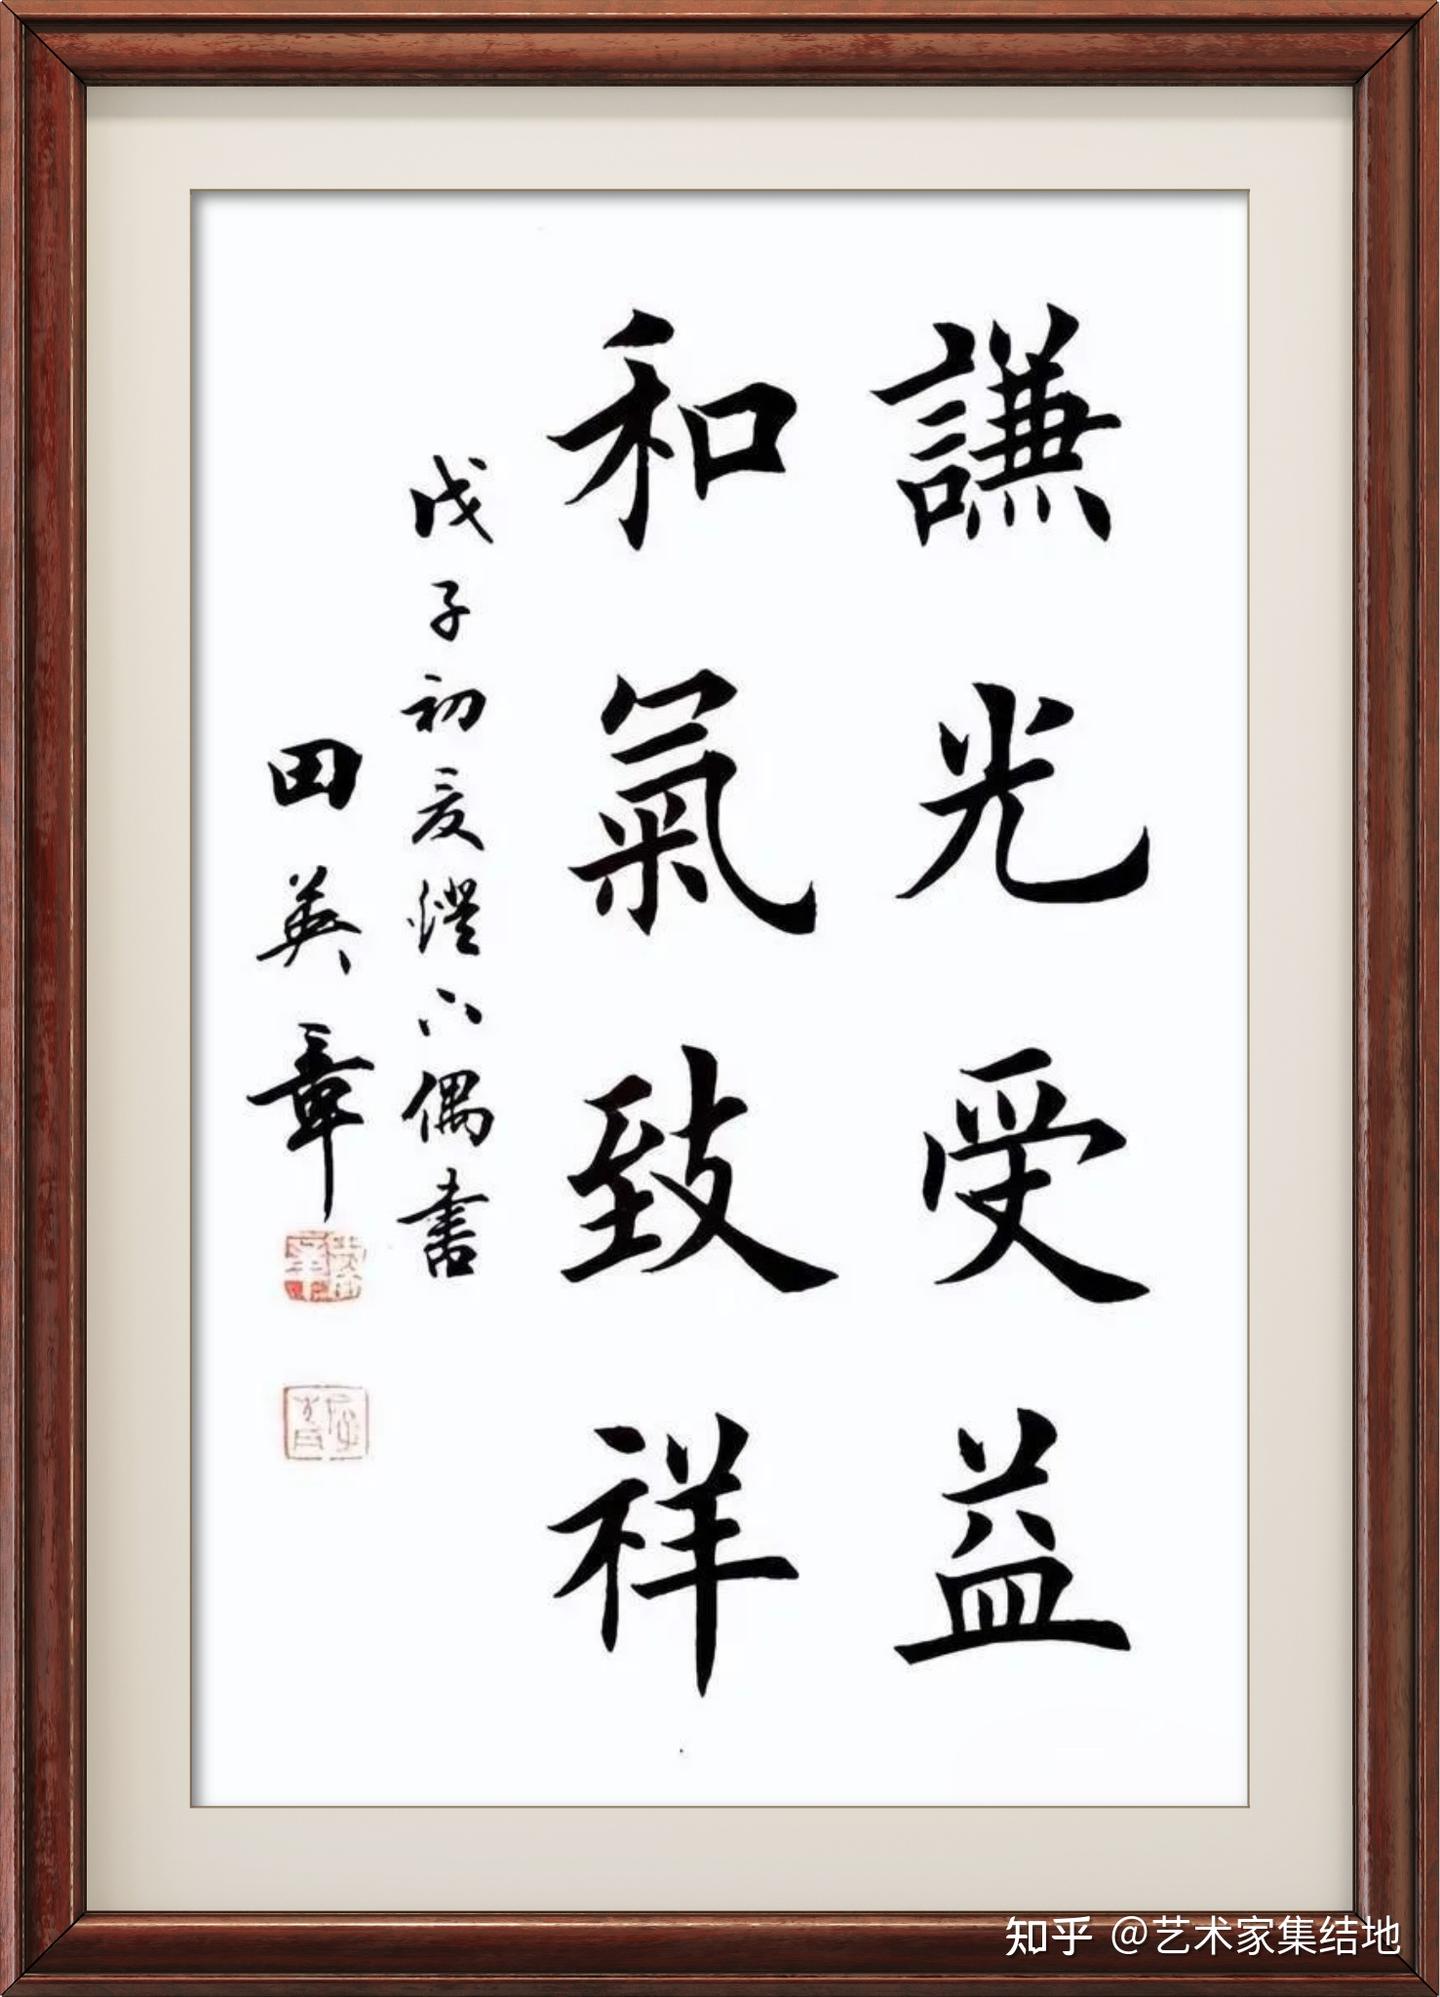 謙光受益
和氣致祥
戊子初夏燈下偶書
田英章
知乎 @艺术家集结地